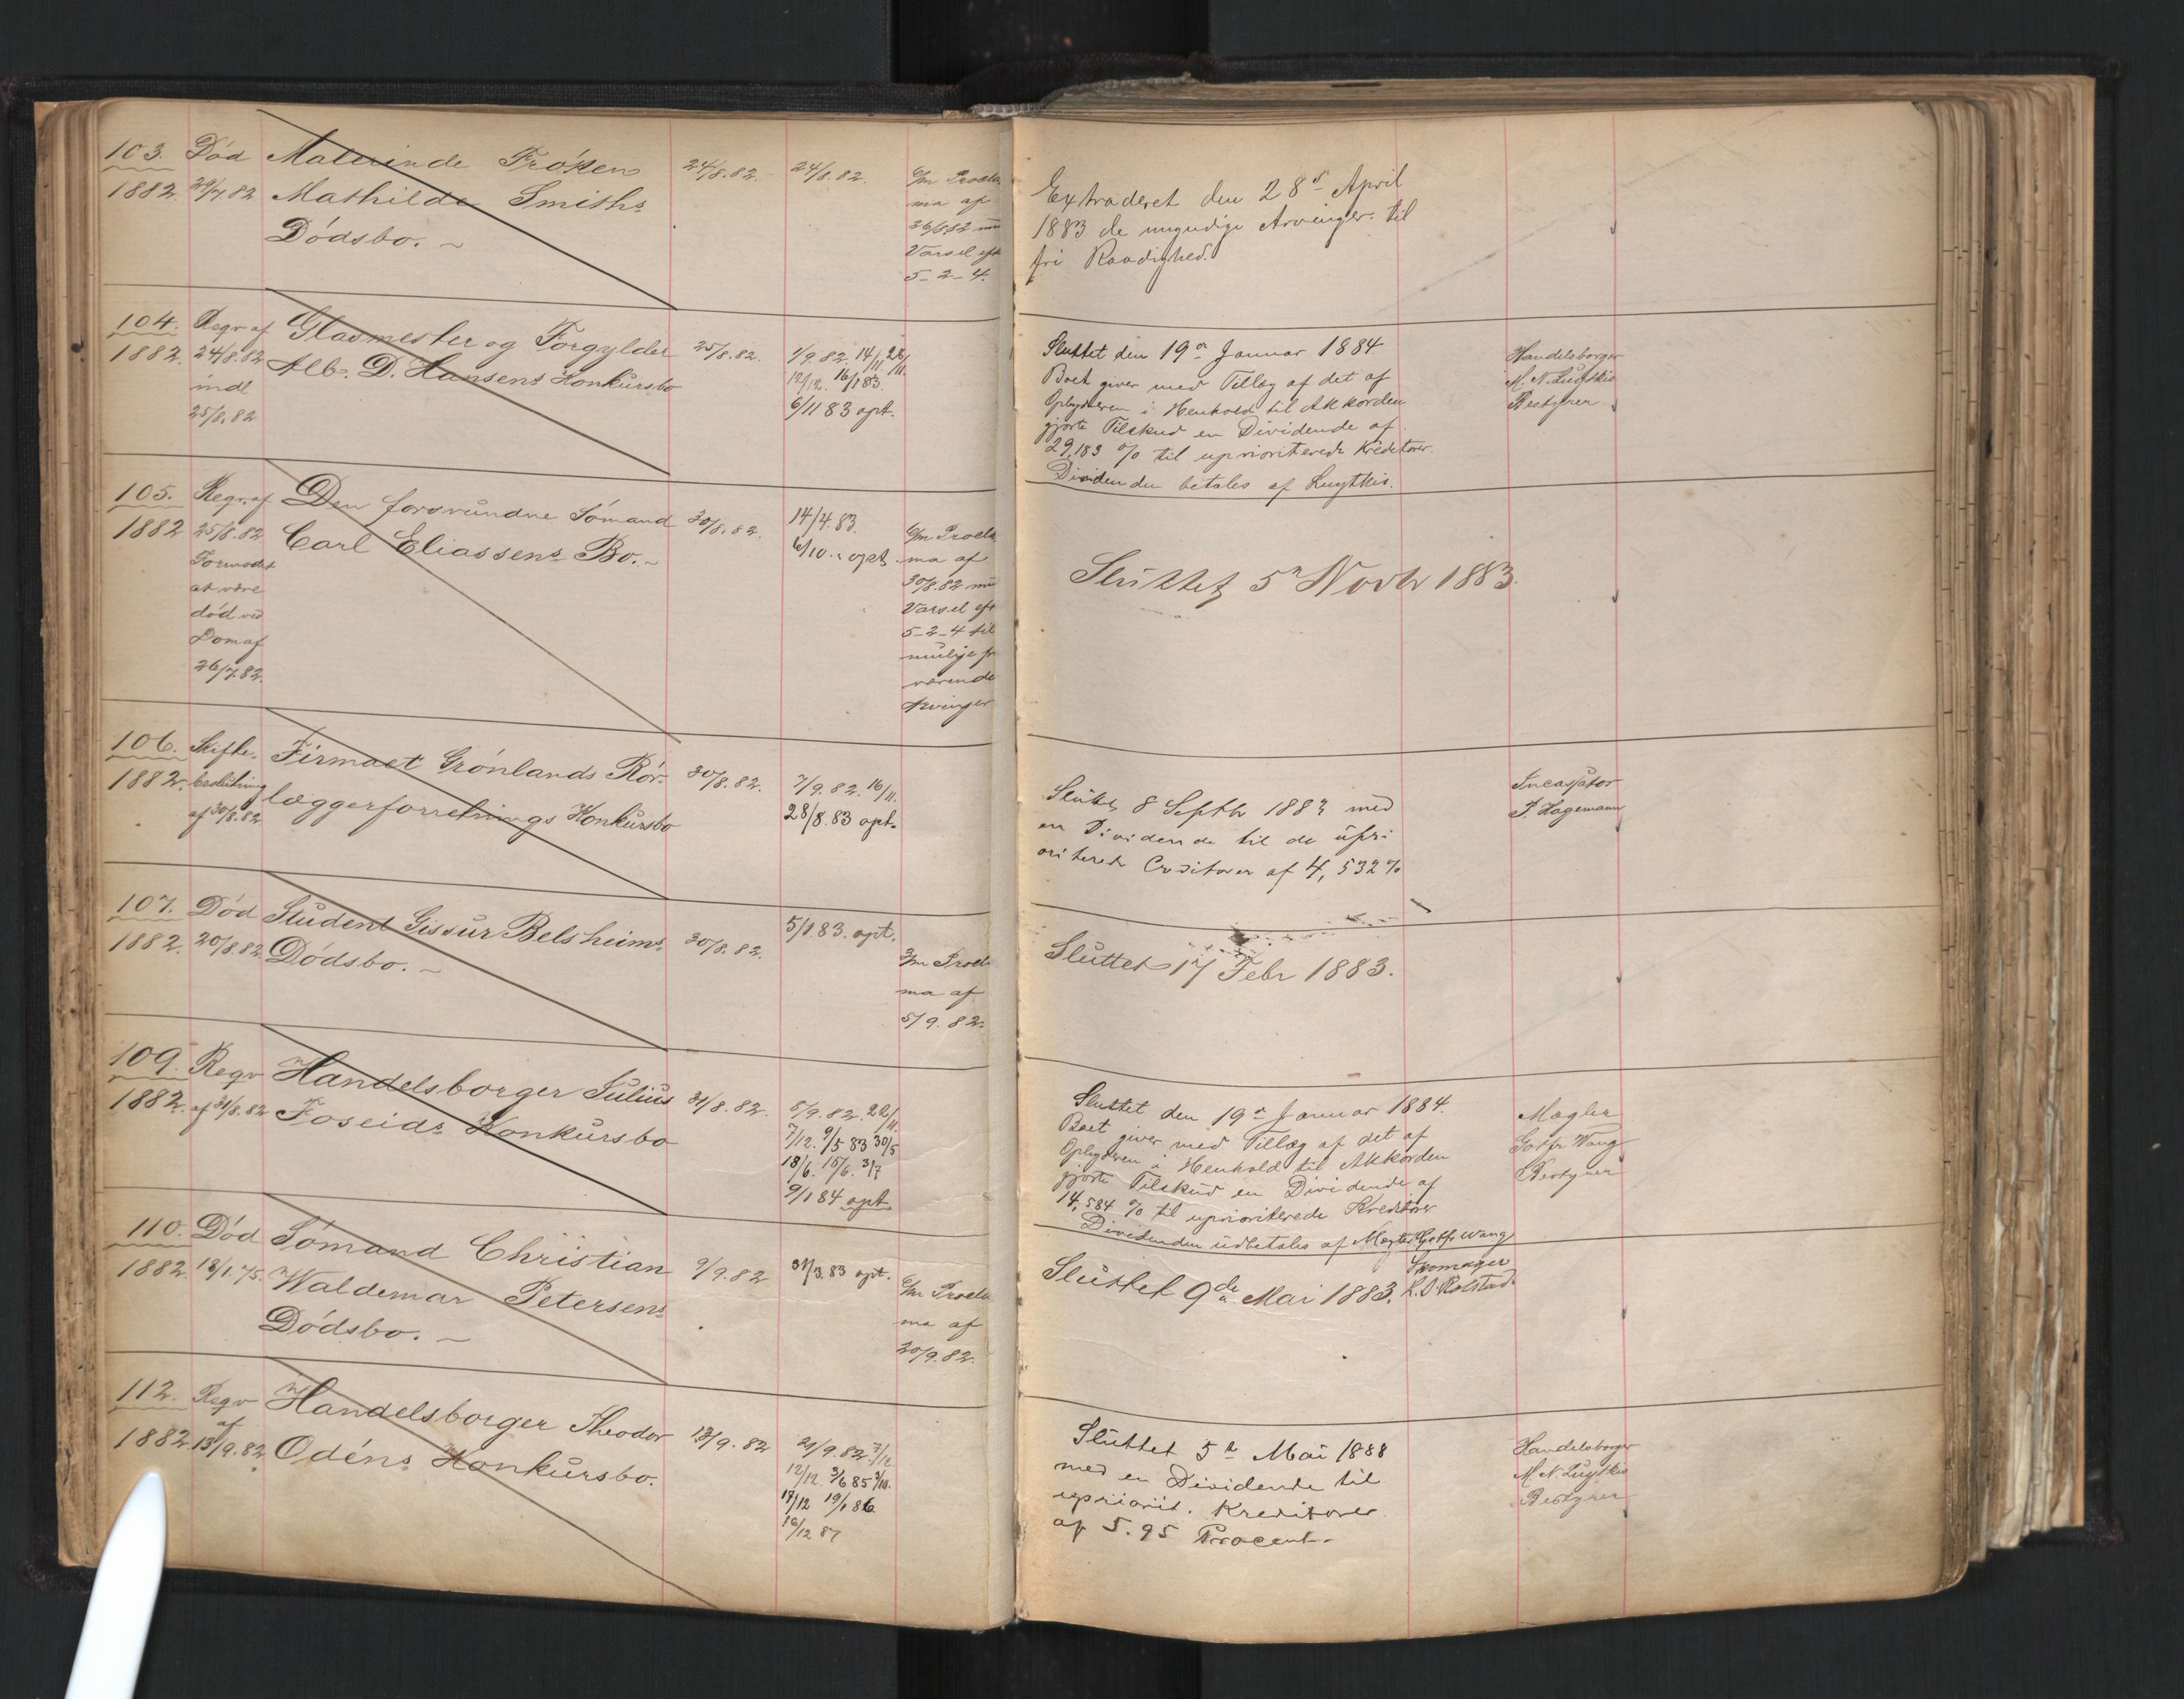 103. Död Malerinde Fröken 24/8.82. 24/8.82. 6/m Procla
1882. 29/7.82 Mathilde Smiths ma af
Dödsbo. 26/8.82 m
Varsel eft
5-2-4.
Extraderet den 28de April
1883 de myndige Arvinger til
fri Raadighed.
104. Reqv af Glasmester og Forgylder 25/8.82.
1882. 24/8.82 Alb. D. Hansens Konkursbo
indl
25/8.82
1/9.82. 14/11. 28/11.
12/12. 16/1 83.
6/11 83 opt.
Sluttet den 19de Januar 1884.
Boet giver med Tillæg af det af
Opbyderen i Henhold til Akkorden
gjorte Tilskud en Dividende af
29,183 % til uprioriterede Kreditorer.
Dividenden betales af Luytkis.
Handelsborger
M. N. Luytkis
Bestyrer
105. Reqv. af Den forsvundne Sömand 30/8.82.
1882 25/8.82 Carl Eliassens Bo.
Formodet
at være
död ved
Dom af
26/7.82.
14/4.83.
6/10 " opt.
6/m Procla
ma af
30/8.82 m
Varsel eft
5-2-4 til
mulige fra
værende
Arvinger
Sluttet 5te Novbr 1883.
106. Skifte- Firmaet Grönlands Rör- 30/8.82.
1882. beslutning læggerforretnings Konkursbo
af 30/8.82
7/9.82. 16/11.
28/8.83 opt.
Sluttet 8 Septbr 1883 med
en Dividende til de upri-
oriterede Creditorer af 4,532 %
Incassator
P. Hagemann
107. Död Student Gissur Belsheims 30/8.82.
1882. 20/8.82 Dödsbo.
5/1 83. opt.
3/m Procla
ma af
5/9.82.
Sluttet 17 Febr 1883.
109. Reqv Handelsborger Julius 31/8.82.
1882. af 31/8.82 Foseids Konkursbo
8/9.82. 22/11.
7/12. 9/5 83 30/5
18/6. 15/6. 3/7
9/1 84 opt
Sluttet den 19de Januar 1884.
Boet giver med Tillæg af det af
Opbyderen i Henhold til Akkorden
gjorte Tilskud en Dividende af
14,584 % til uprioriterede Kreditorer
Dividenden udbetales af Megler Gotfr. Wang
Megler
Gotfr Wang
Bestyrer
110. Död Sömand Christian 9/9.82
1882. 18/1.75. Waldemar Petersens
Dödsbo.
31/3.83 opt.
6/m Procla
ma af
20/9.82.
Sluttet 9de Mai 1883.
112. Reqv Handelsborger Theodor 13/9.82
af
1882 13/9.82 Odéns Konkursbo.
21/9.82. 7/12.
12/12. 3/6 85 3/10.
17/12 19/1 86
16/12 87
Sluttet 5te Mai 1888
med en Dividende til
upriorit. Kreditorer
af 5.95 Procent.
Handelsborger
M. N. Luytkis
Bestyrer